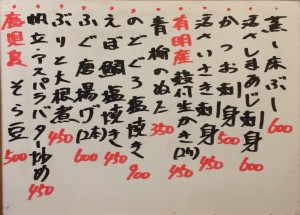 蒸し床ぶし 600
活さしまあじ刺身 600
かつお刺身 500
活さいさき刺身 450
有明産 殻付生かき(2ヶ) 450
青柳のぬた 350
のどぐろ塩焼き 900
えぼ鯛塩焼き 450
ふぐ唐揚げ(2本) 600
ぶりと大根煮 450
帆立・アスパラバター炒め 450
鹿児島 そら豆 500